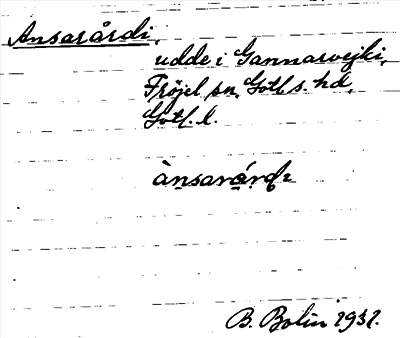 Ansarårdi,
udde i Gannarvejki,
Fröjel sn, Gotl. s. hd,
Gotl. l.
B. Bolin 1931.